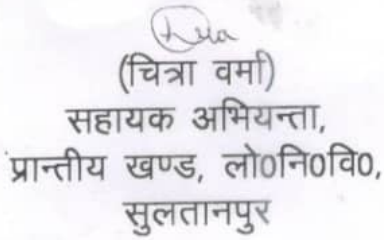 (चित्रा वर्मा)
सहायक अभियन्ता,
प्रान्तीय खण्ड, लो0नि0वि0,
सुलतानपुर